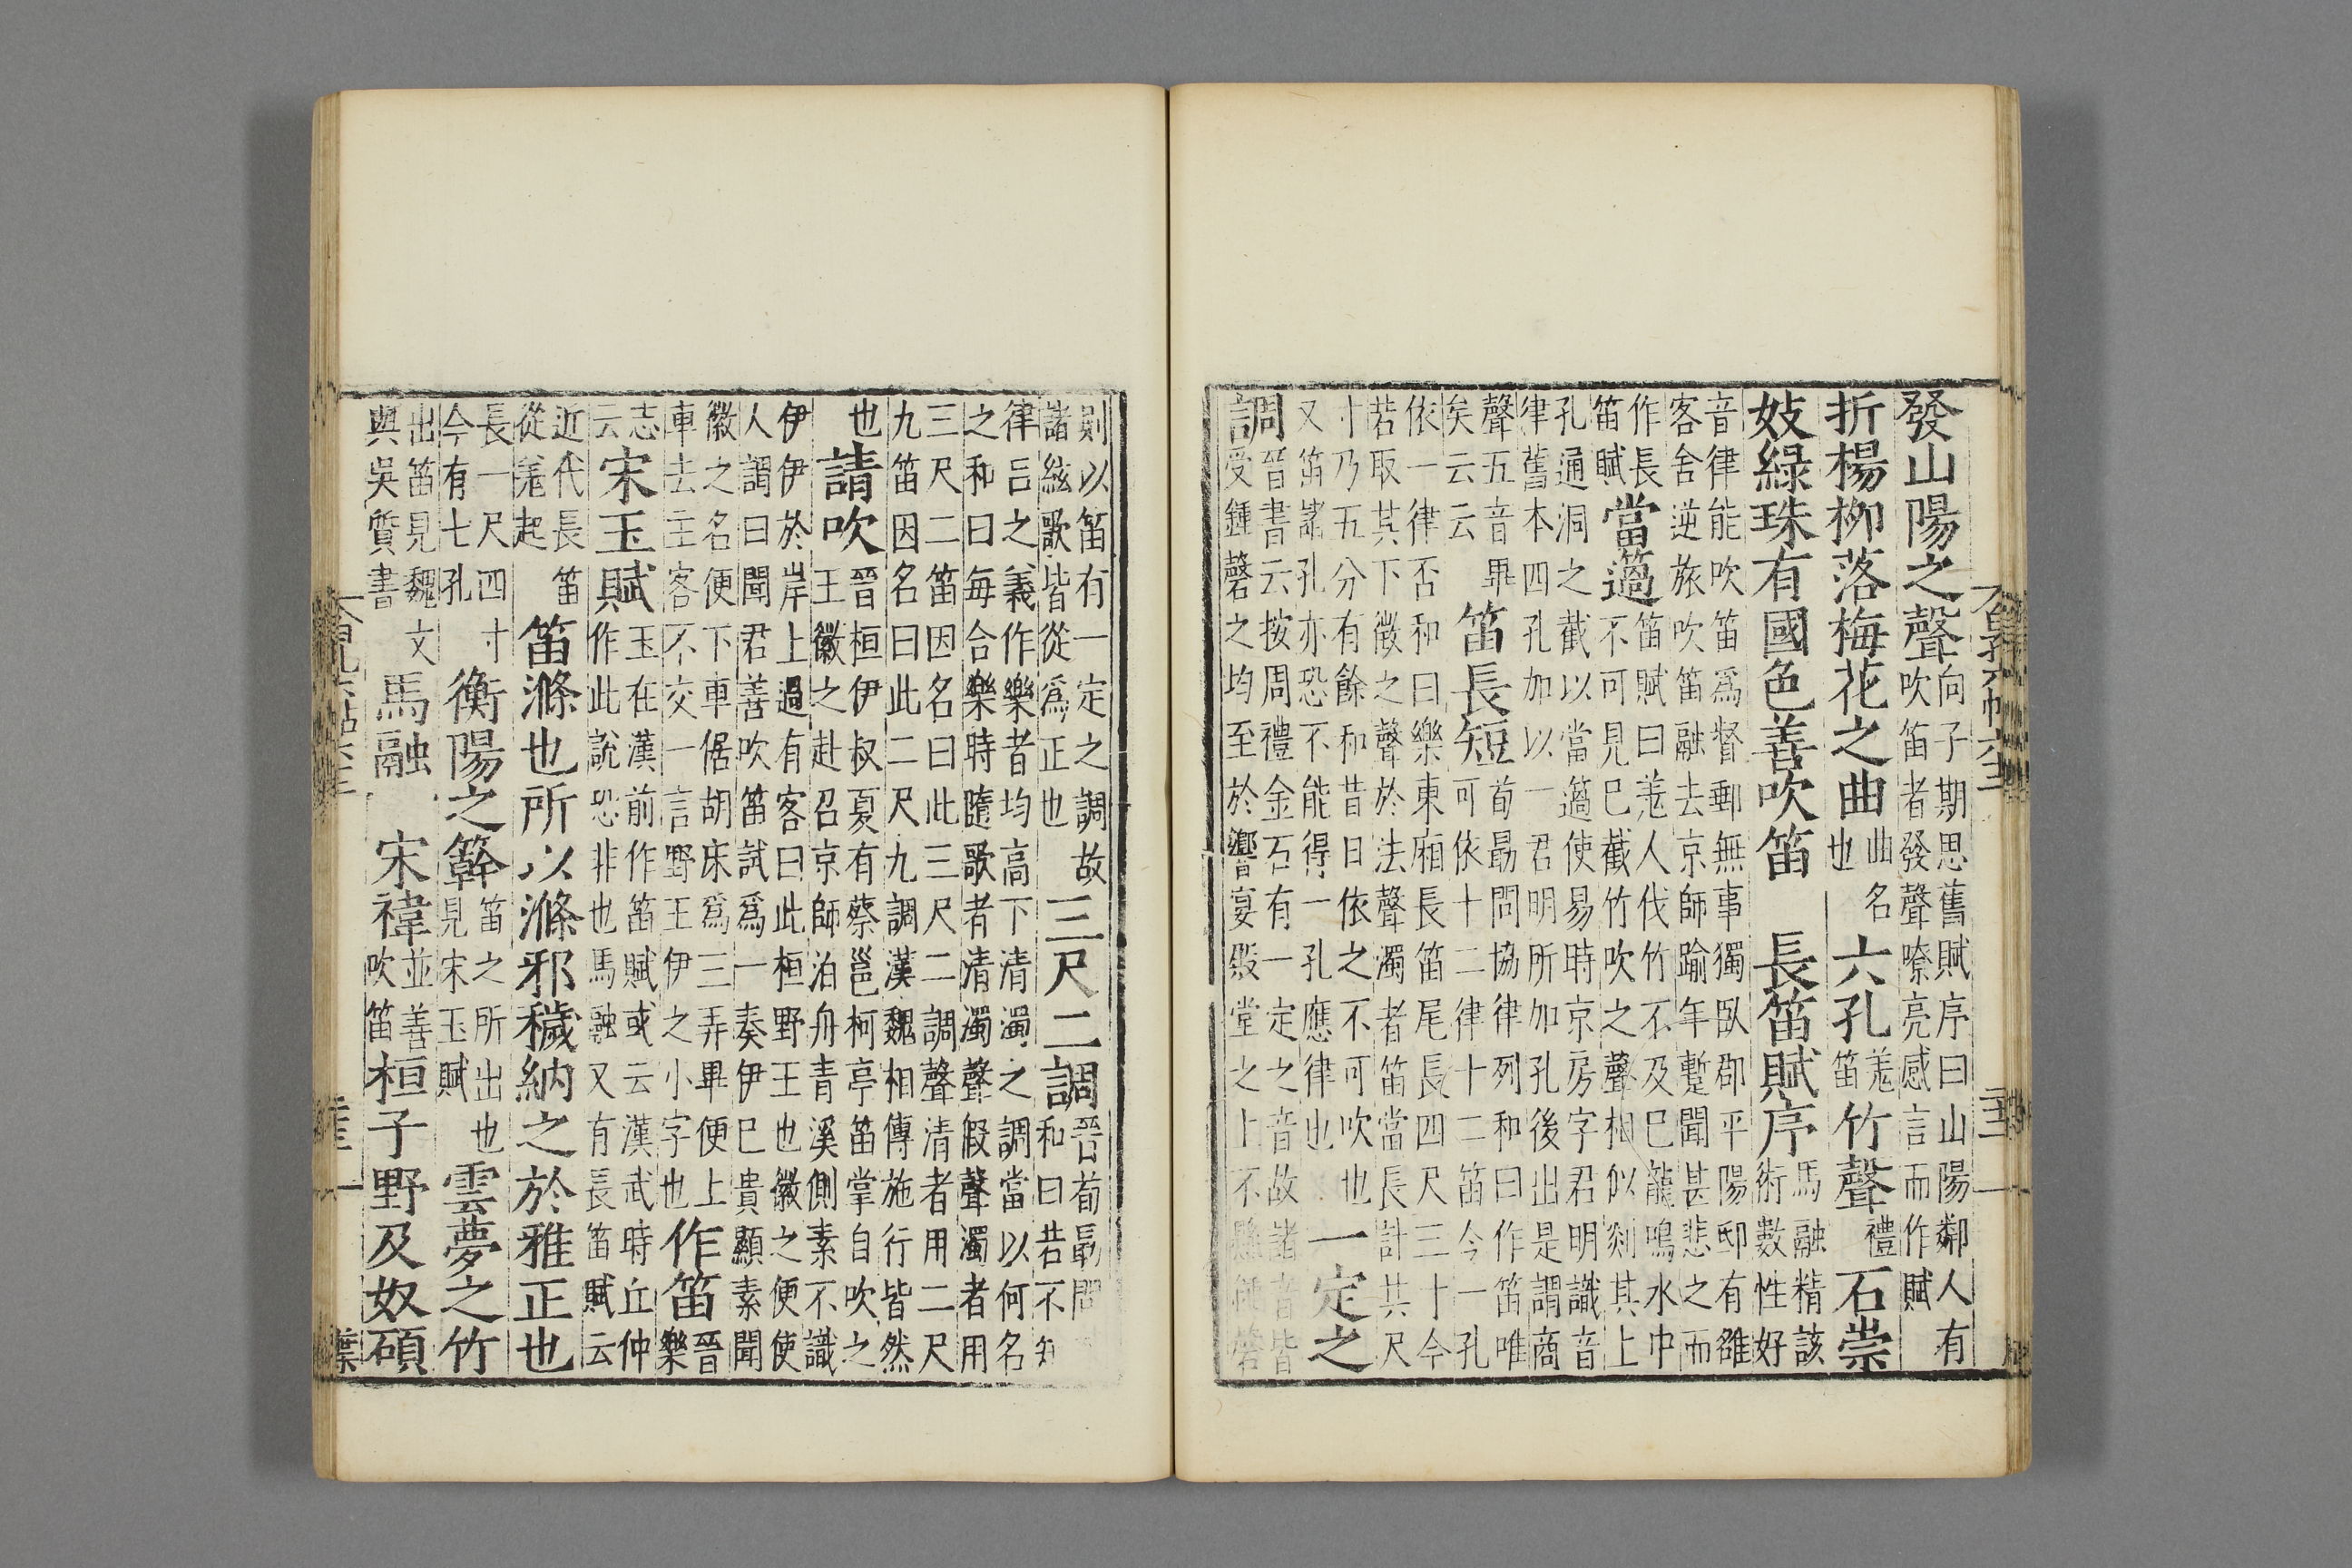 發山陽之聲向子期思舊賦序曰山陽鄰人有
吹笛者發聲嘹亮感言而作賦
折楊柳落梅花之曲曲名也 六孔羗笛竹聲禮石崇
妓綠珠有國色善吹笛 長笛賦序馬融精該
術數性好
音律能吹笛爲督郵無事獨臥郡平陽邸有雒
客舍逆旅吹笛融去京師踰年蹔聞甚悲之而
作長笛賦曰羗人伐竹不及巳龍鳴水中
笛賦當簻不可見巳截竹吹之聲相似剡其上
孔通洞之截以當簻使易時京房字君明識音
律舊本四孔加以一君明所加孔後出是謂商
聲五音畢 笛長短荀勗問協律列和曰作笛唯
矣云云可依十二律十二笛今一孔
依一律否和曰樂東廂長笛尾長四尺三十今
若取其下徵之聲於法聲濁者笛當長計其尺
寸乃五分有餘和昔日依之不可吹也一定之
又笛諸孔亦恐不能得一孔應律也
調晉書云按周禮金石有一定之音故諸者皆
受鍾磬之均至於饗宴殿堂之上不
則以笛有一定之調故三尺二調晉荀勗問
諸絃歌皆從爲正也和曰若不知
律呂之義作樂者均高下清濁之調當以何名
之和曰每合樂時隨歌者清濁聲假聲濁者用
三尺二笛因名曰此三尺二調聲清者用二尺
九笛因名曰此二尺九調漢魏相傳施行皆然
也請吹晉桓伊叔夏有蔡邕柯亭笛掌自吹之
王徽之赴召京師泊舟青溪側素不識
伊伊於岸上過有客曰此桓野王也徽之便使
人謂曰聞君善吹笛試爲一奏伊巳貴顯素聞
徽之名便下車倨胡床爲三弄畢便上作笛晉
車去主客不交一言野王伊之小字也樂
志宋玉賦玉在漢前作笛賦或云漢武時丘仲
云作此說恐非也馬融又有長笛賦云
近代長笛 笛滌也所以滌邪穢納之於雅正也
從羗起
長一尺四寸衡陽之簳笛之所出也雲夢之竹
今有七孔見宋玉賦
出笛見魏文馬融 宋禕並善吹笛桓子野及奴碩
與吳質書